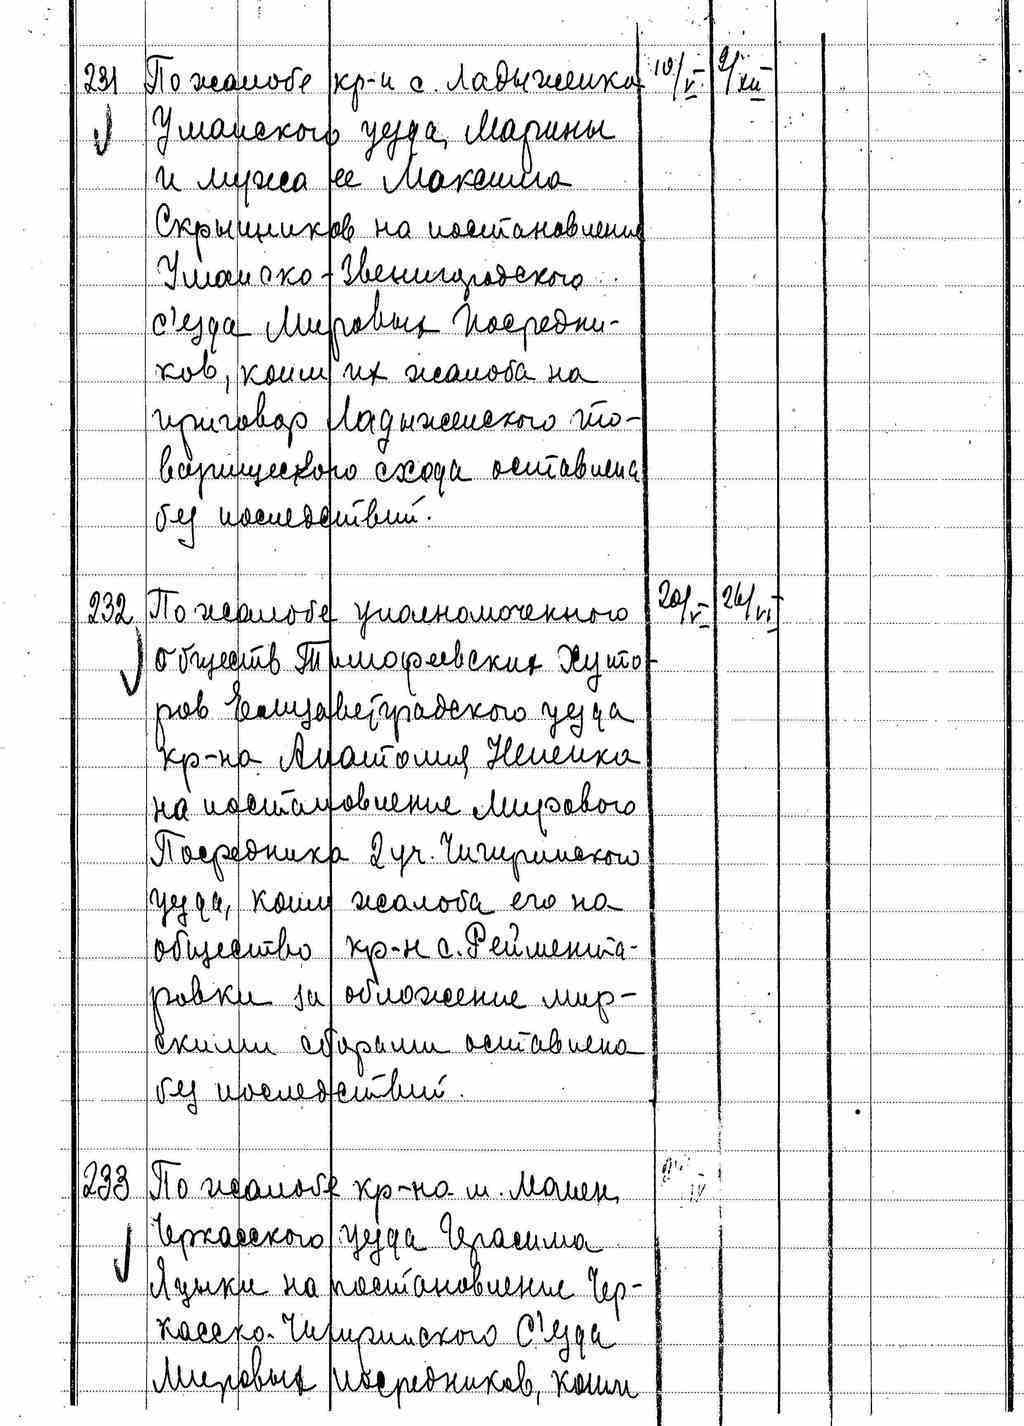 231 По жалобе кр-и с. Ладыженка 10/V 9/XII
Уманского уезда, Марины
и мужа ее Максима
Скрыцников на постановление
Уманско-Звенигородского
с'езда Мировых Посредни-
ков, коим их жалоба на
приговор Ладыженского то-
варищеского схода оставлена
без последствий.
232 По жалобе уполномоченного 20/V 26/VI
обществ Тимофеевских Хуто-
ров Елизаветградского уезда
кр-на Анатолия
на постановление Мирового
Посредника 2 уч. Чигиринского
уезда, коим жалоба его на
общество кр-н с. Реймента-
ровки за обложение мир-
скими сборами оставлена
без последствий.
233 По жалобе кр-на м.
Черкасского уезда Герасима
на постановление Чер-
касско-Чигиринского С'езда
Мировых посредников, коим